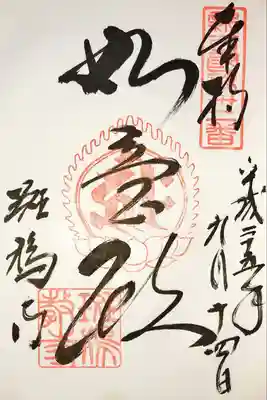 奉拝
平成二五年
九月十四日
如意殿
斑鳩寺